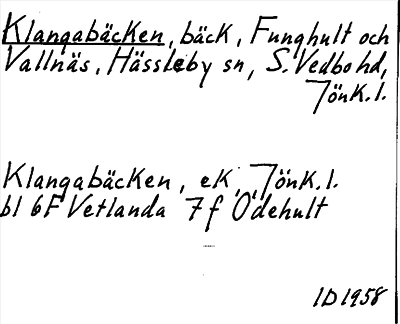 Klangabäcken, bäck, Funghult och
Vallnäs, Hässleby sn, S. Vedbo hd,
Jönk. l.
Klangabäcken, ek, Jönk. l.
bl 6F Vetlanda 7f Ödehult
ID 1958